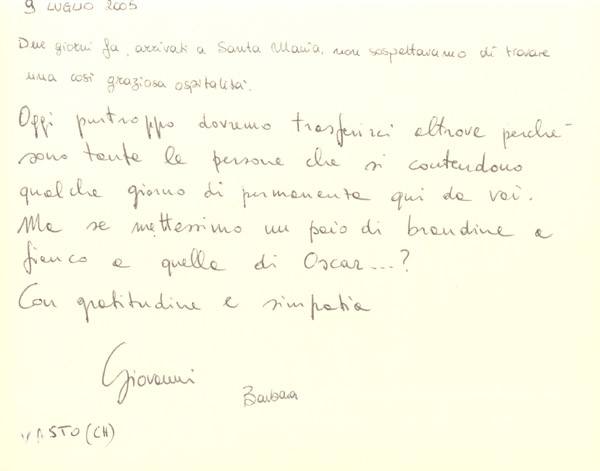 9 LUGLIO 2005
Due giorni fa, arrivati a Santa Maria, non sospettavamo di trovare
una così graziosa ospitalità.
Oggi purtroppo dovremo trasferirci altrove perché
sono tante le persone che si contendono
qualche giorno di permanenza qui da voi.
Ma se mettessimo un paio di brandine a
fianco a quella di Oscar...?
Con gratitudine e simpatia
Giovanni
Barbara
VASTO (CH)